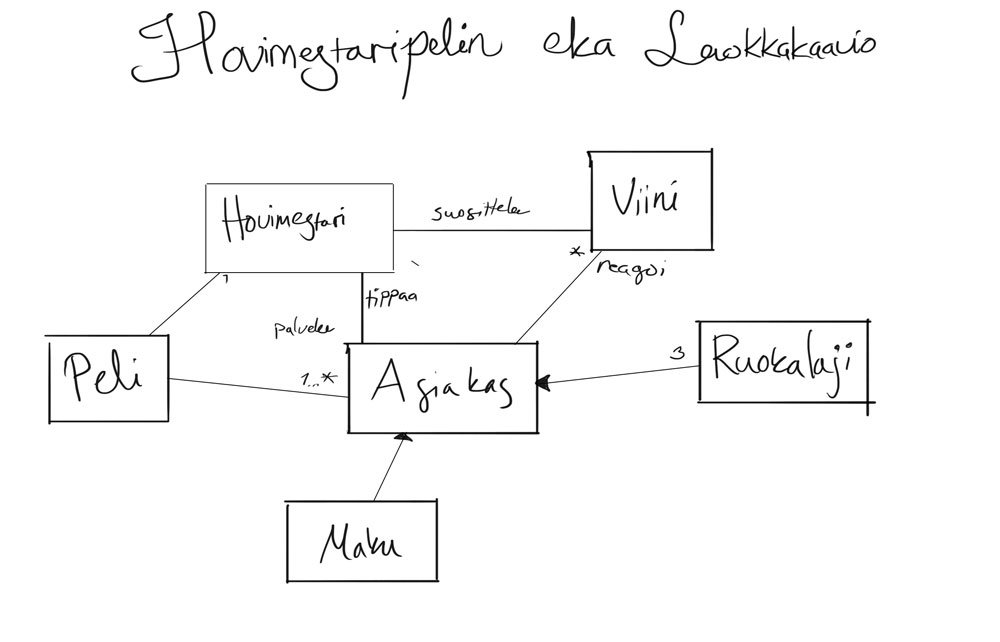 Hovimestaripelin eka Luokkakaavio
Viini
Hovimestari
suosittelee
*
reagoi
1
tippaa
palvelee
Peli
1...*
Asiakas
3
Ruokalaji
Maku